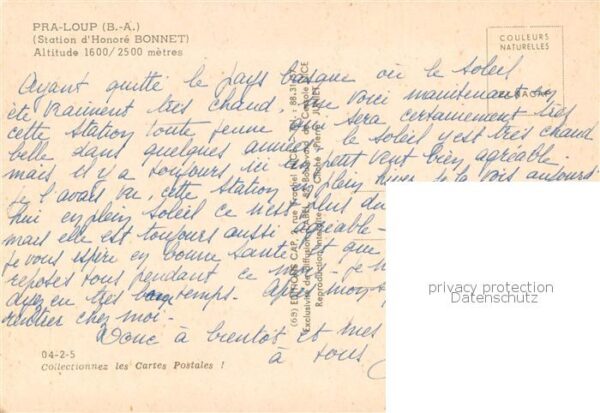 PRA-LOUP (B.-A.)
(Station d'Honoré BONNET)
Altitude 1600/2500 mètres
COULEURS
NATURELLES
Ayant quitté le pays basque où le soleil
été vraiment très chand me voici maintenant
cette station toute jeune qui sera certainement très
belle dans quelques années le soleil y est très chaud
mais il y a toujours ici un petit vent bien agréable.
je l'avais vu, cette station en plein hiver je le vois aujourd'
hui en plein soleil ce n'est plus du
mais elle est toujours aussi agréable-
je vous espère en bonne santé et que
reposés tous pendant ce
ayez eu très beau temps. Après mon
rentrer chez moi-
Donc à bientôt et mes
à tous
(6S) EDITIONS CAP, rue NICE
Reproduction interdite
04-2-5
Collectionnez les Cartes Postales !
privacy protection
Datenschutz